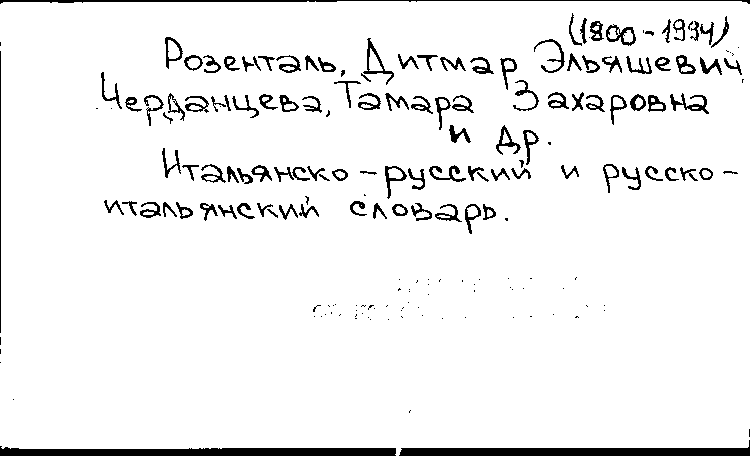 (1900-1994)
Розенталь, Дитмар Эльяшевич
Черданцева, Тамара Захаровна
и др.
Итальянско-русский и русско-
итальянский словарь.